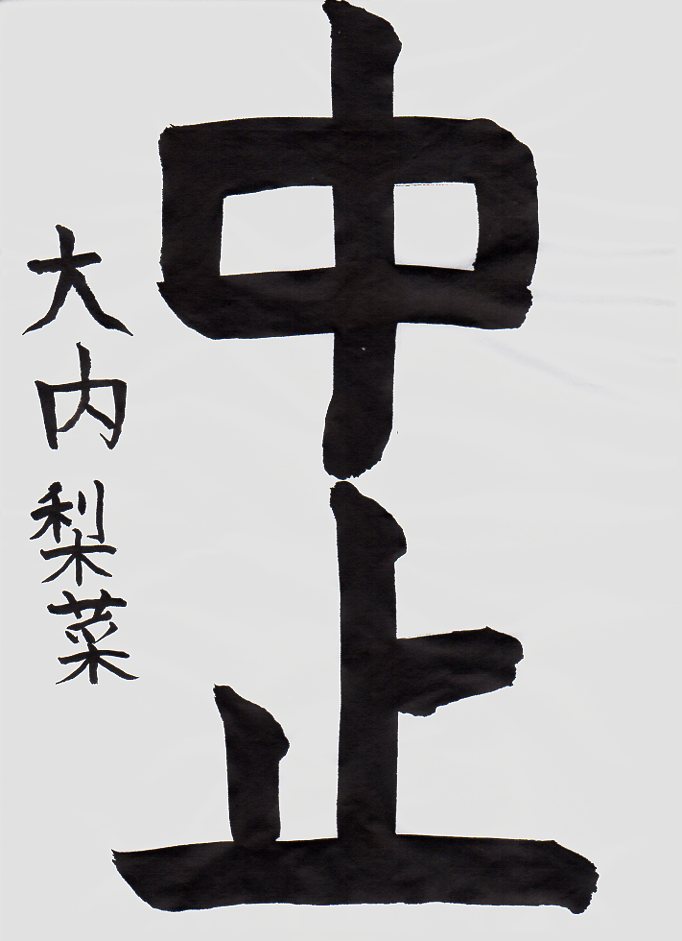 中止
大内梨菜